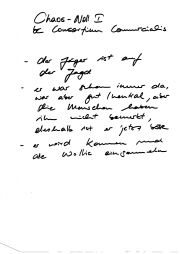 Chaos-Null I
& Consortium Commercialis
- der Jäger ist auf
der Jagd
- er war schon immer da,
war aber gut / neutral, aber
die Menschen haben
ihn nicht bemerkt,
deshalb ist er jetzt böse
- er wird kommen und
die Wolle einsammeln